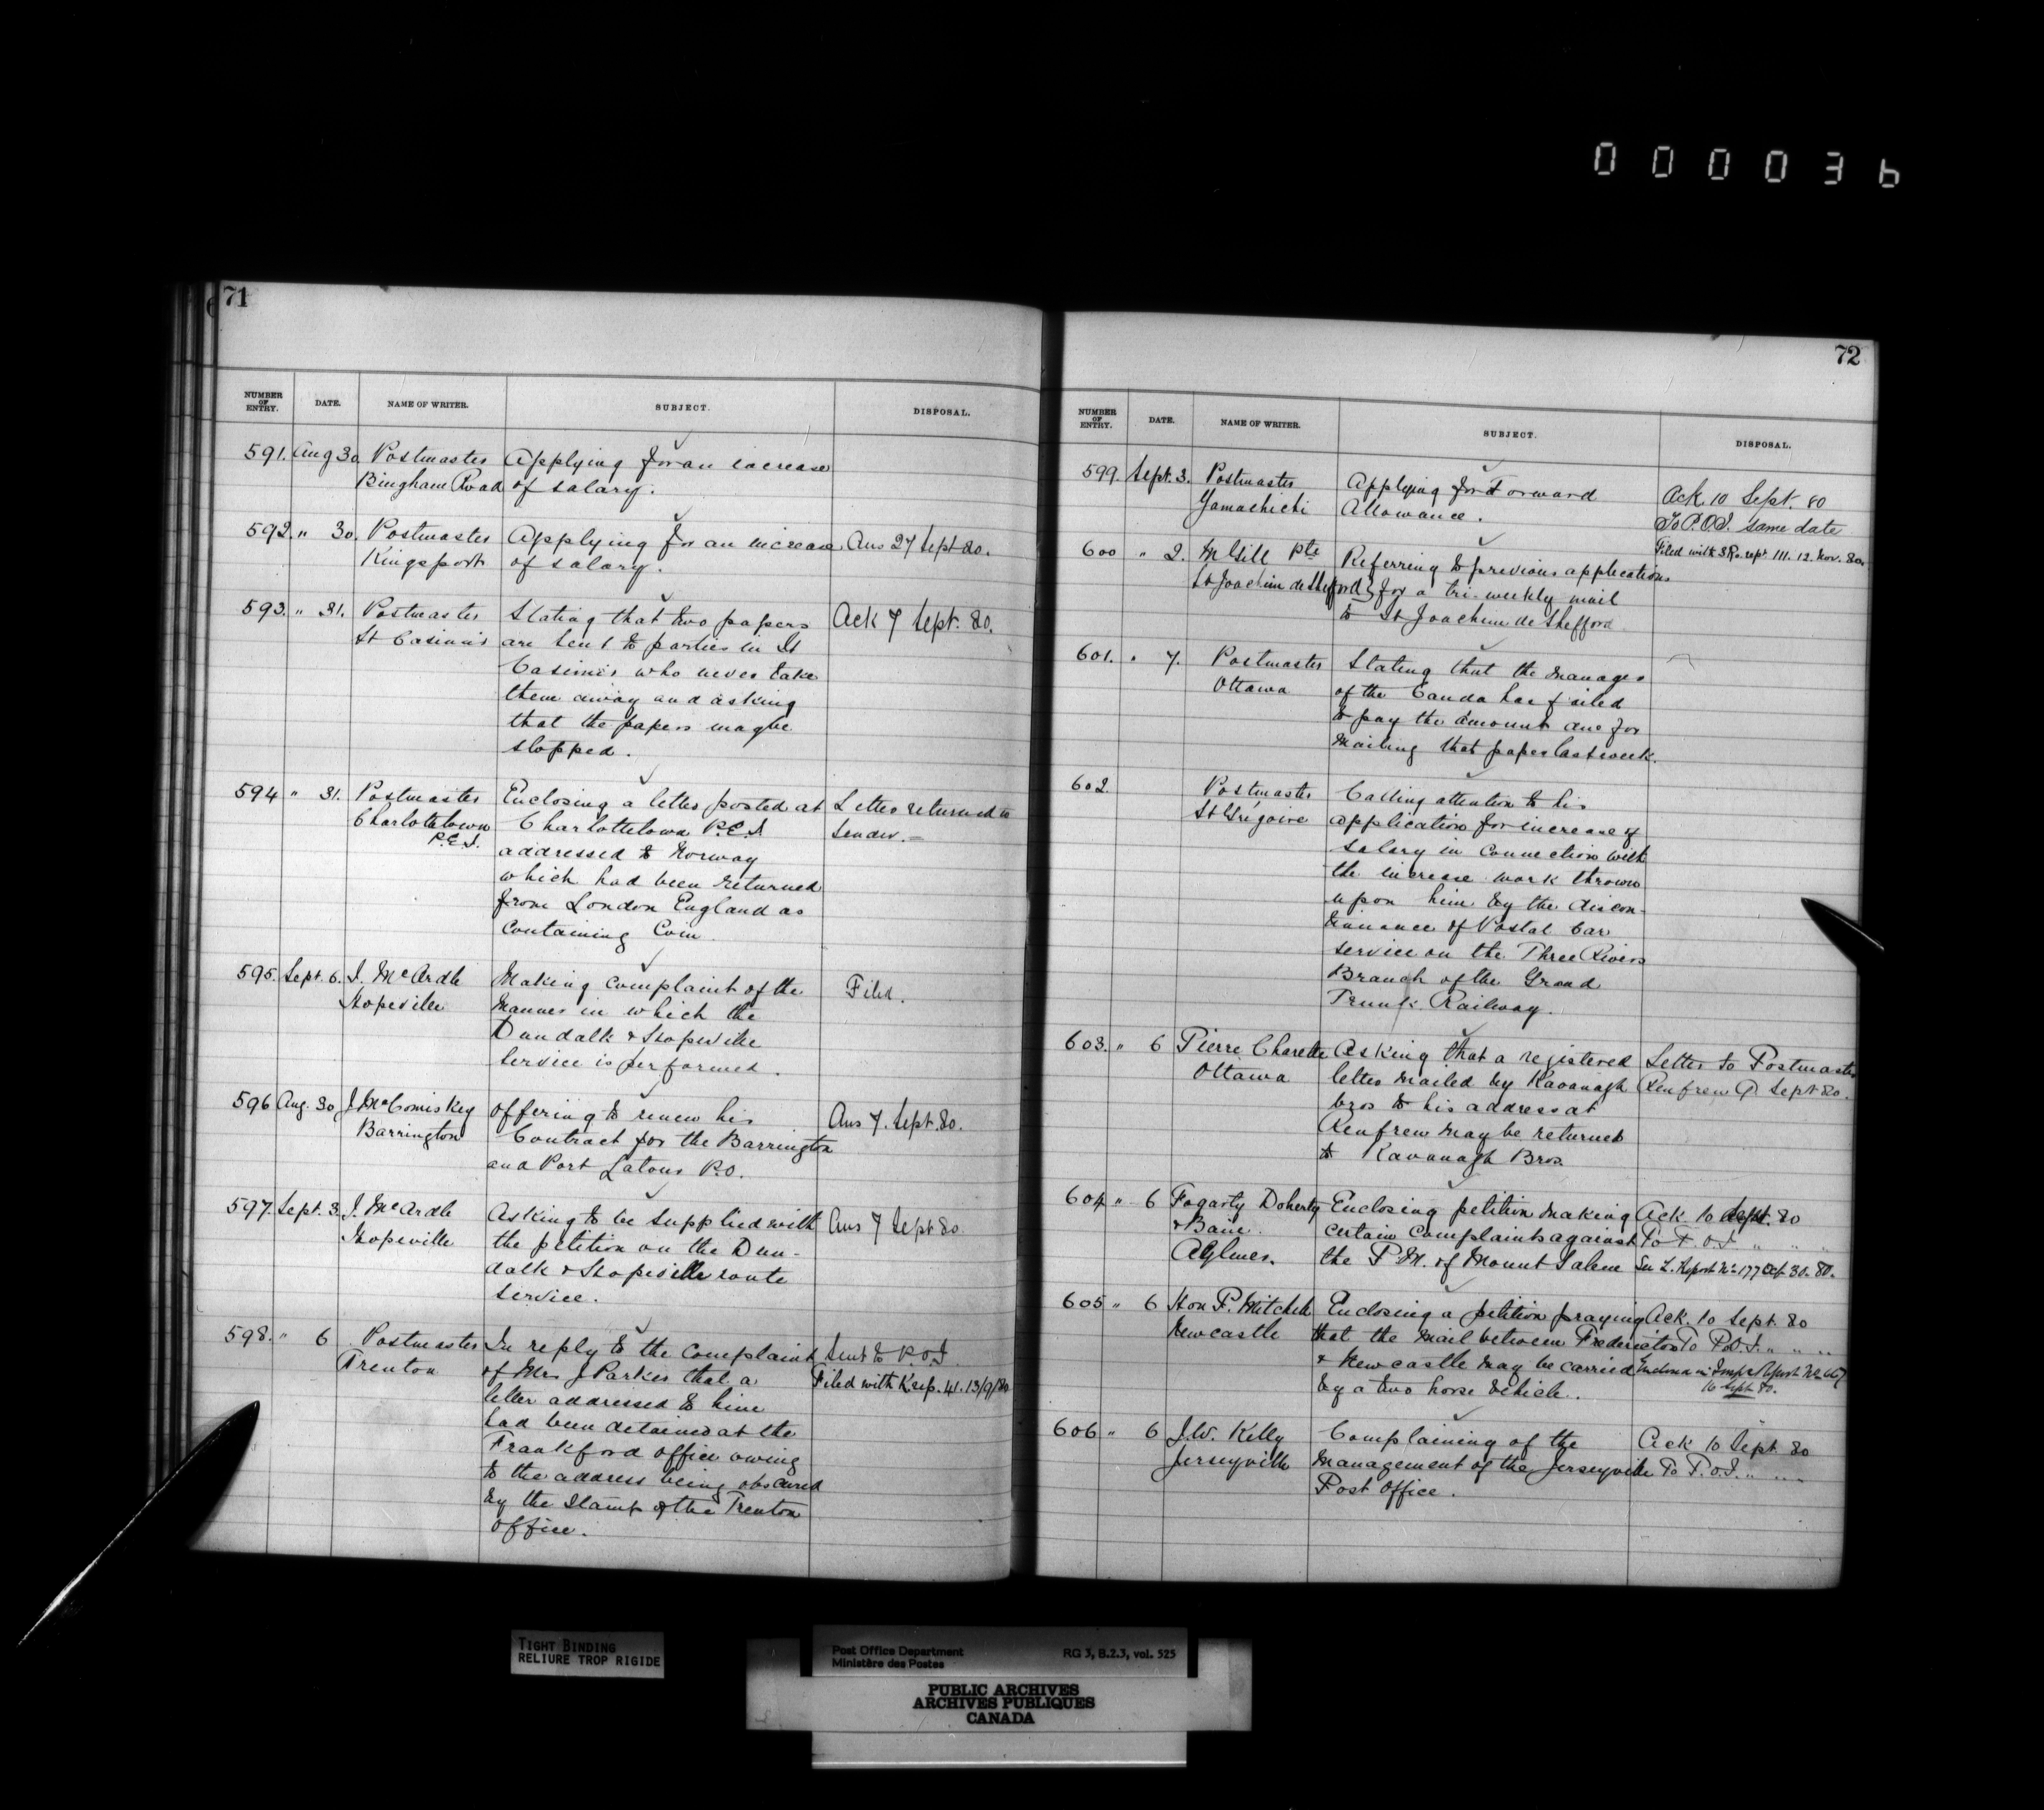 000036
71
NUMBER OF ENTRY. DATE. NAME OF WRITER. SUBJECT. DISPOSAL.
591. Aug 30 Postmaster Applying for an increase
Bingham Road of salary.
592. " 30. Postmaster Applying for an increase Ans 27 Sept 80.
Kingsport of salary.
593. " 31. Postmaster Stating that two papers Ack 7 Sept. 80.
St Casimir are sent to parties in St
Casimir who never take
them away and asking
that the papers may be
stopped.
594 " 31. Postmaster Enclosing a letter posted at Letter returned to
Charlottetown Charlottetown P.E.I. sender.
P.E.I.
addressed to Norway
which had been returned
from London England as
containing Coin
595. Sept. 6. J. McArdle Making complaint of the Filed.
Hopeville Manner in which the
Dundalk & Hopeville
Service is performed.
596 Aug. 30 J McComiskey offering to renew his Ans 7. Sept. 80.
Barrington Contract for the Barrington
and Port Latour P.O.
597. Sept. 3. J. McArdle Asking to be supplied with Ans 7 Sept 80
Hopeville the petition on the Dun-
dalk & Hopeville route
service.
598. " 6 Postmaster In reply to the complaint Sent to P.O.I
Trenton of Mrs J Parker that a Filed with K rep. 41. 13/9/80
letter addressed to him
had been detained at the
Frankford office owing
to the address being obscured
by the Stamp of the Trenton
office.
72
NUMBER OF ENTRY. DATE. NAME OF WRITER. SUBJECT. DISPOSAL.
599. Sept. 3. Postmaster Applying for Forward Ack. 10 Sept. 80
Yamachichi Allowance. To P.O.I. same date
Filed with 111. 12. Nov. 80.
600 " 2. McGill Pte Referring to previous applications
St Joachim de Shefford for a tri-weekly mail
to St Joachim de Shefford
601. " 7. Postmaster Stating that the manager
Ottawa of the Canada has failed
to pay the amount due for
mailing that paper last week.
602. Postmaster Calling attention to his
St Grégoire application for increase of
salary in connection with
the increase work thrown
upon him by the discon-
tinuance of Postal Car
service on the Three Rivers
Branch of the Grand
Trunk Railway.
603. " 6 Pierre Charette Asking that a registered Letter to Postmaster
Ottawa letter mailed by Kavanagh Renfrew 9 Sept 80.
bros to his address at
Renfrew may be returned
to Kavanagh Bros.
604 " 6 Fogarty Doherty Enclosing petition making Ack 10 Sept. 80
& Bain certain complaints against To P.O.I. " " "
Aylmer. the P.M. of Mount Salem See L. Report No 177 Sep 30. 80.
605 " 6 Hon P. Mitchell Enclosing a petition praying Ack. 10 Sept 80
Newcastle that the mail between Fredericton To P.O.I. " " "
& Newcastle may be carried Report No 667
by a two horse vehicle. 16 Sept 80.
606 " 6 J.W. Kelly Complaining of the Ack 10 Sept 80
Jerseyville management of the Jerseyville To P.O.I. " " "
Post Office.
TIGHT BINDING
RELIURE TROP RIGIDE
Post Office Department RG 3, B.2.3, vol. 525
Ministère des Postes
PUBLIC ARCHIVES
ARCHIVES PUBLIQUES
CANADA